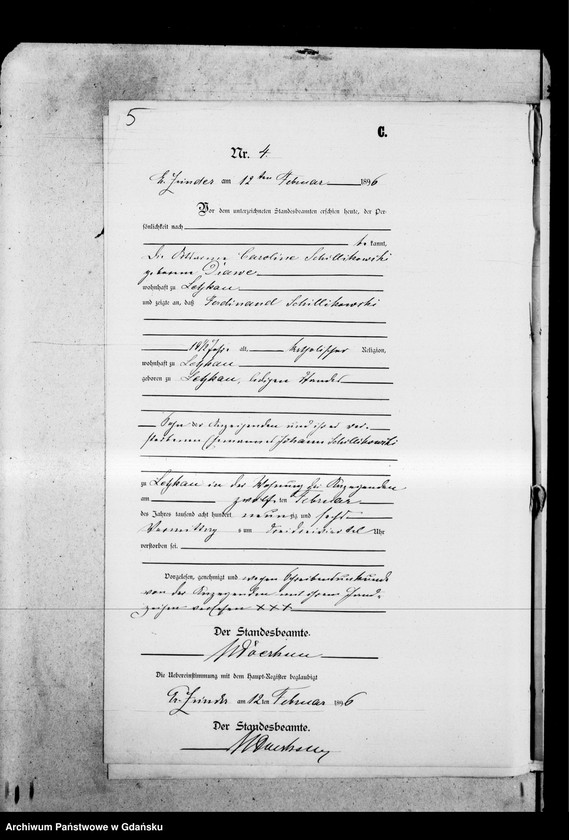 5
C.
Nr. 4.
Gr. Zünder am 12ten Februar 1896
Vor dem unterzeichneten Standesbeamten erschien heute, der Per-
sönlichkeit nach
be kannt,
die Wittwe Caroline Schillikowski
geborene
wohnhaft zu Letzkau
und zeigte an, daß Ferdinand Schillikowski
14½ Jahr alt, katholischer Religion,
wohnhaft zu Letzkau
geboren zu Letzkau, ledigen Standes
Sohn der Anzeigenden und ihres ver-
storbenen Ehemannes Johann Schillikowski
zu Letzkau in der Wohnung der Anzeigenden
am zwölften Februar
des Jahres tausend acht hundert neunzig und sechs
Vormittag s um dreidreiviertel Uhr
verstorben sei.
Vorgelesen, genehmigt und wegen Schreibensunkunde
von der Anzeigenden mit ihrem Hand-
zeichen versehen XXX
Der Standesbeamte.
Die Uebereinstimmung mit dem Haupt-Register beglaubigt
Gr. Zünder am 12ten Februar 1896
Der Standesbeamte.
Archiwum Państwowe w Gdańsku